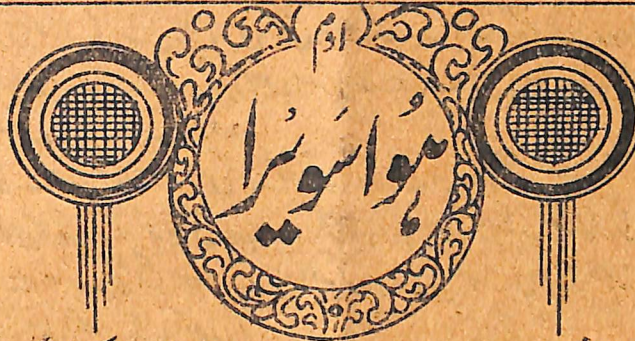 اوم
ہُوا سَویُرا